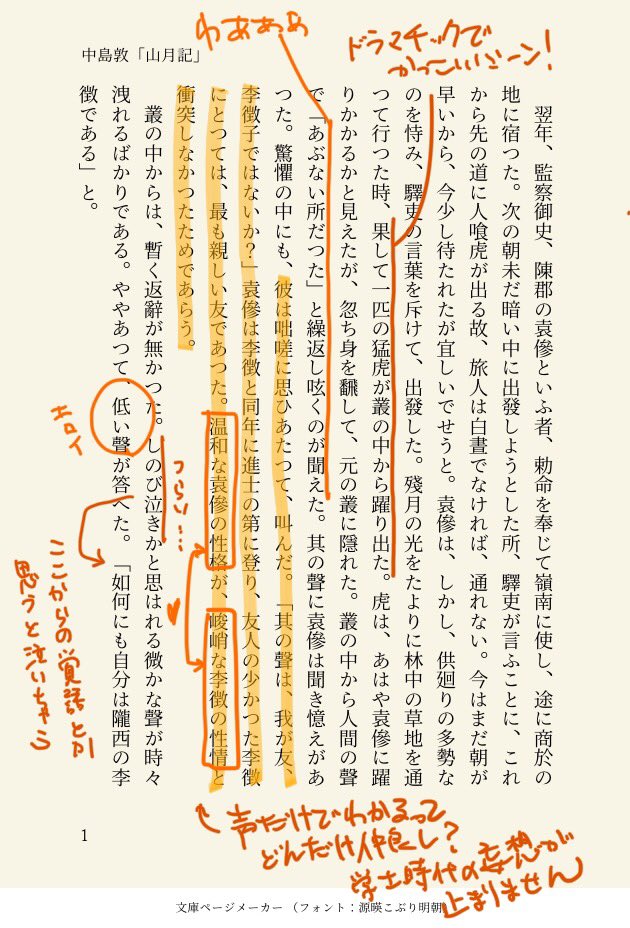 中島敦「山月記」
わあああ
ドラマチックで
かっこいいシーン!
翌年、監察御史、陳郡の袁傪といふ者、勅命を奉じて嶺南に使し、途に商於の
地に宿つた。次の朝未だ暗い中に出發しようとした所、驛吏が言ふことに、これ
から先の道に人喰虎が出る故、旅人は白晝でなければ、通れない。今はまだ朝が
早いから、今少し待たれたが宜しいでせうと。袁傪は、しかし、供廻りの多勢な
のを恃み、驛吏の言葉を斥けて、出發した。殘月の光をたよりに林中の草地を通
つて行つた時、果して一匹の猛虎が叢の中から躍り出た。虎は、あはや袁傪に躍
りかかるかと見えたが、忽ち身を飜して、元の叢に隱れた。叢の中から人間の聲
で「あぶない所だつた」と繰返し呟くのが聞えた。其の聲に袁傪は聞き憶えがあ
つた。驚懼の中にも、彼は咄嗟に思ひあたつて、叫んだ。「其の聲は、我が友、
李徴子ではないか?」袁傪は李徴と同年に進士の第に登り、友人の少かつた李徴
にとつては、最も親しい友であつた。温和な袁傪の性格が、峻峭な李徴の性情と
衝突しなかつたためであらう。
叢の中からは、暫く返辭が無かつた。しのび泣きかと思はれる微かな聲が時々
洩れるばかりである。ややあつて、低い聲が答へた。「如何にも自分は隴西の李
徴である」と。
つらい…
エロイ
ここからの覚語とか
思うと泣いちゃう
声だけでわかるって
どんだけ仲良し?
学士時代の妄想が
止まりません
1
文庫ページメーカー (フォント:源暎こぶり明朝)